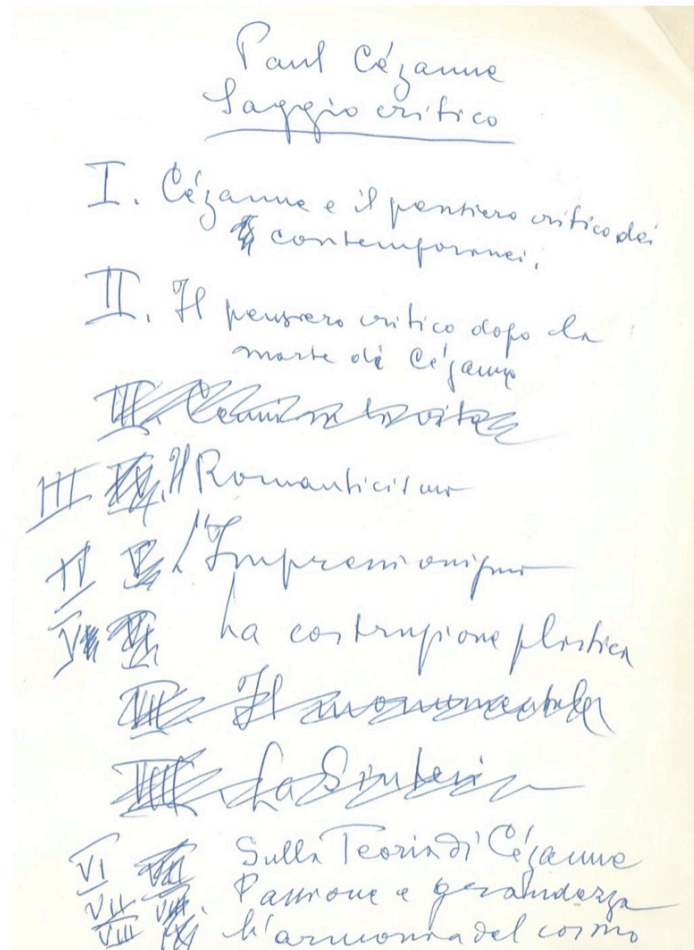 Paul Cézanne
Saggio critico
I. Cézanne e il pensiero critico dei
contemporanei.
II. Il pensiero critico dopo la
morte di Cézanne
III.
III Il Romanticismo
IV V. L'Impressionismo
V VI. La costruzione plastica
VII. Il monumentale
VIII. La Sintesi
VI VII Sulla Teoria di Cézanne
VII VIII. Passione e grandezza
VIII IX L'armonia del cosmo